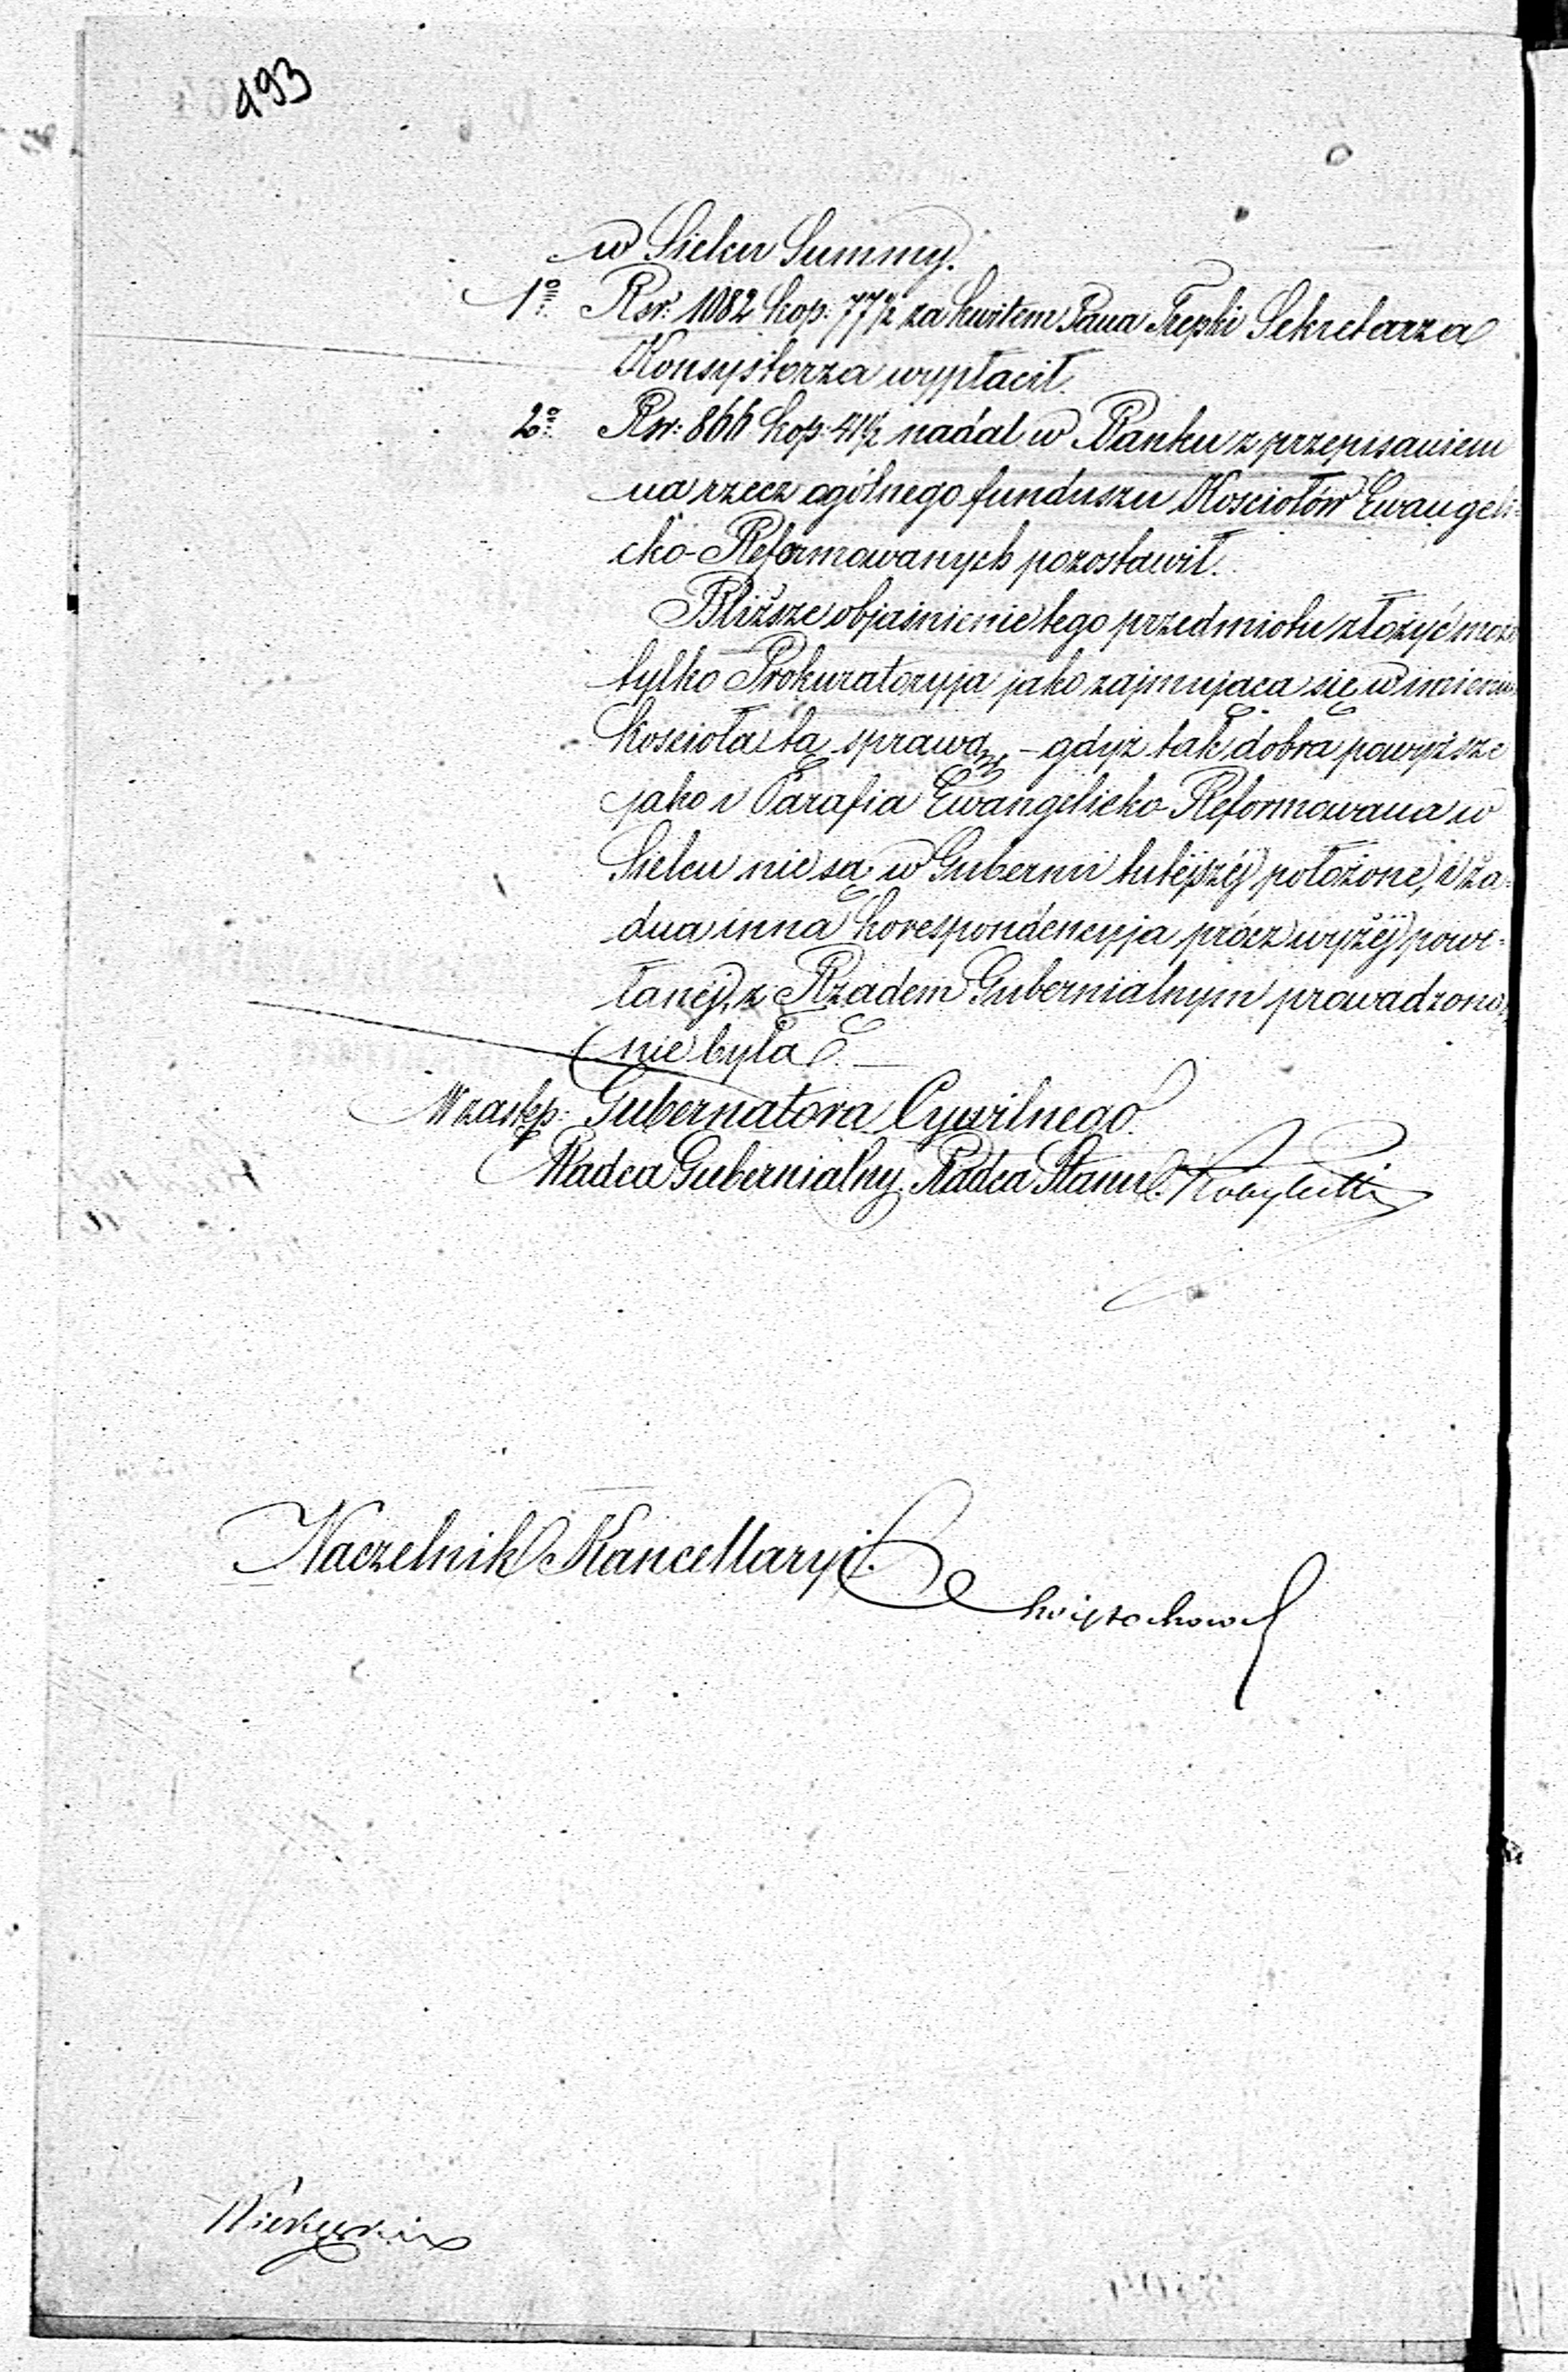 193
w Sielcu Summy.
1º Rsr: 1082 kop: 77½ za kwitem Pana Trepki Sekretarza
Konsystorza wypłacił.
2º Rsr: 866 kop: 41½ nadal w Banku z przepisaniem
na rzecz ogólnego funduszu Kosciołów Ewangeli-
cko-Reformowanych pozostawił.
Bliższe objaśnienie tego przedmiotu złożyć może
tylko Prokuratoryja jako zajmująca się w imieniu
Koscioła tą sprawą, - gdyż tak dobra powyższe
jako i Parafia Ewangelicko-Reformowana w
Sielcu nie są w Gubernii tutéjszéj położone, i ża-
dna inna korespondencyja prócz wyżéj powo-
łanéj, z Rządem Gubernialnym prowadzona
nie była. —
W zastęp: Gubernatora Cywilnego.
Radca Gubernialny, Radca Stanu
Naczelnik Kancellaryi.